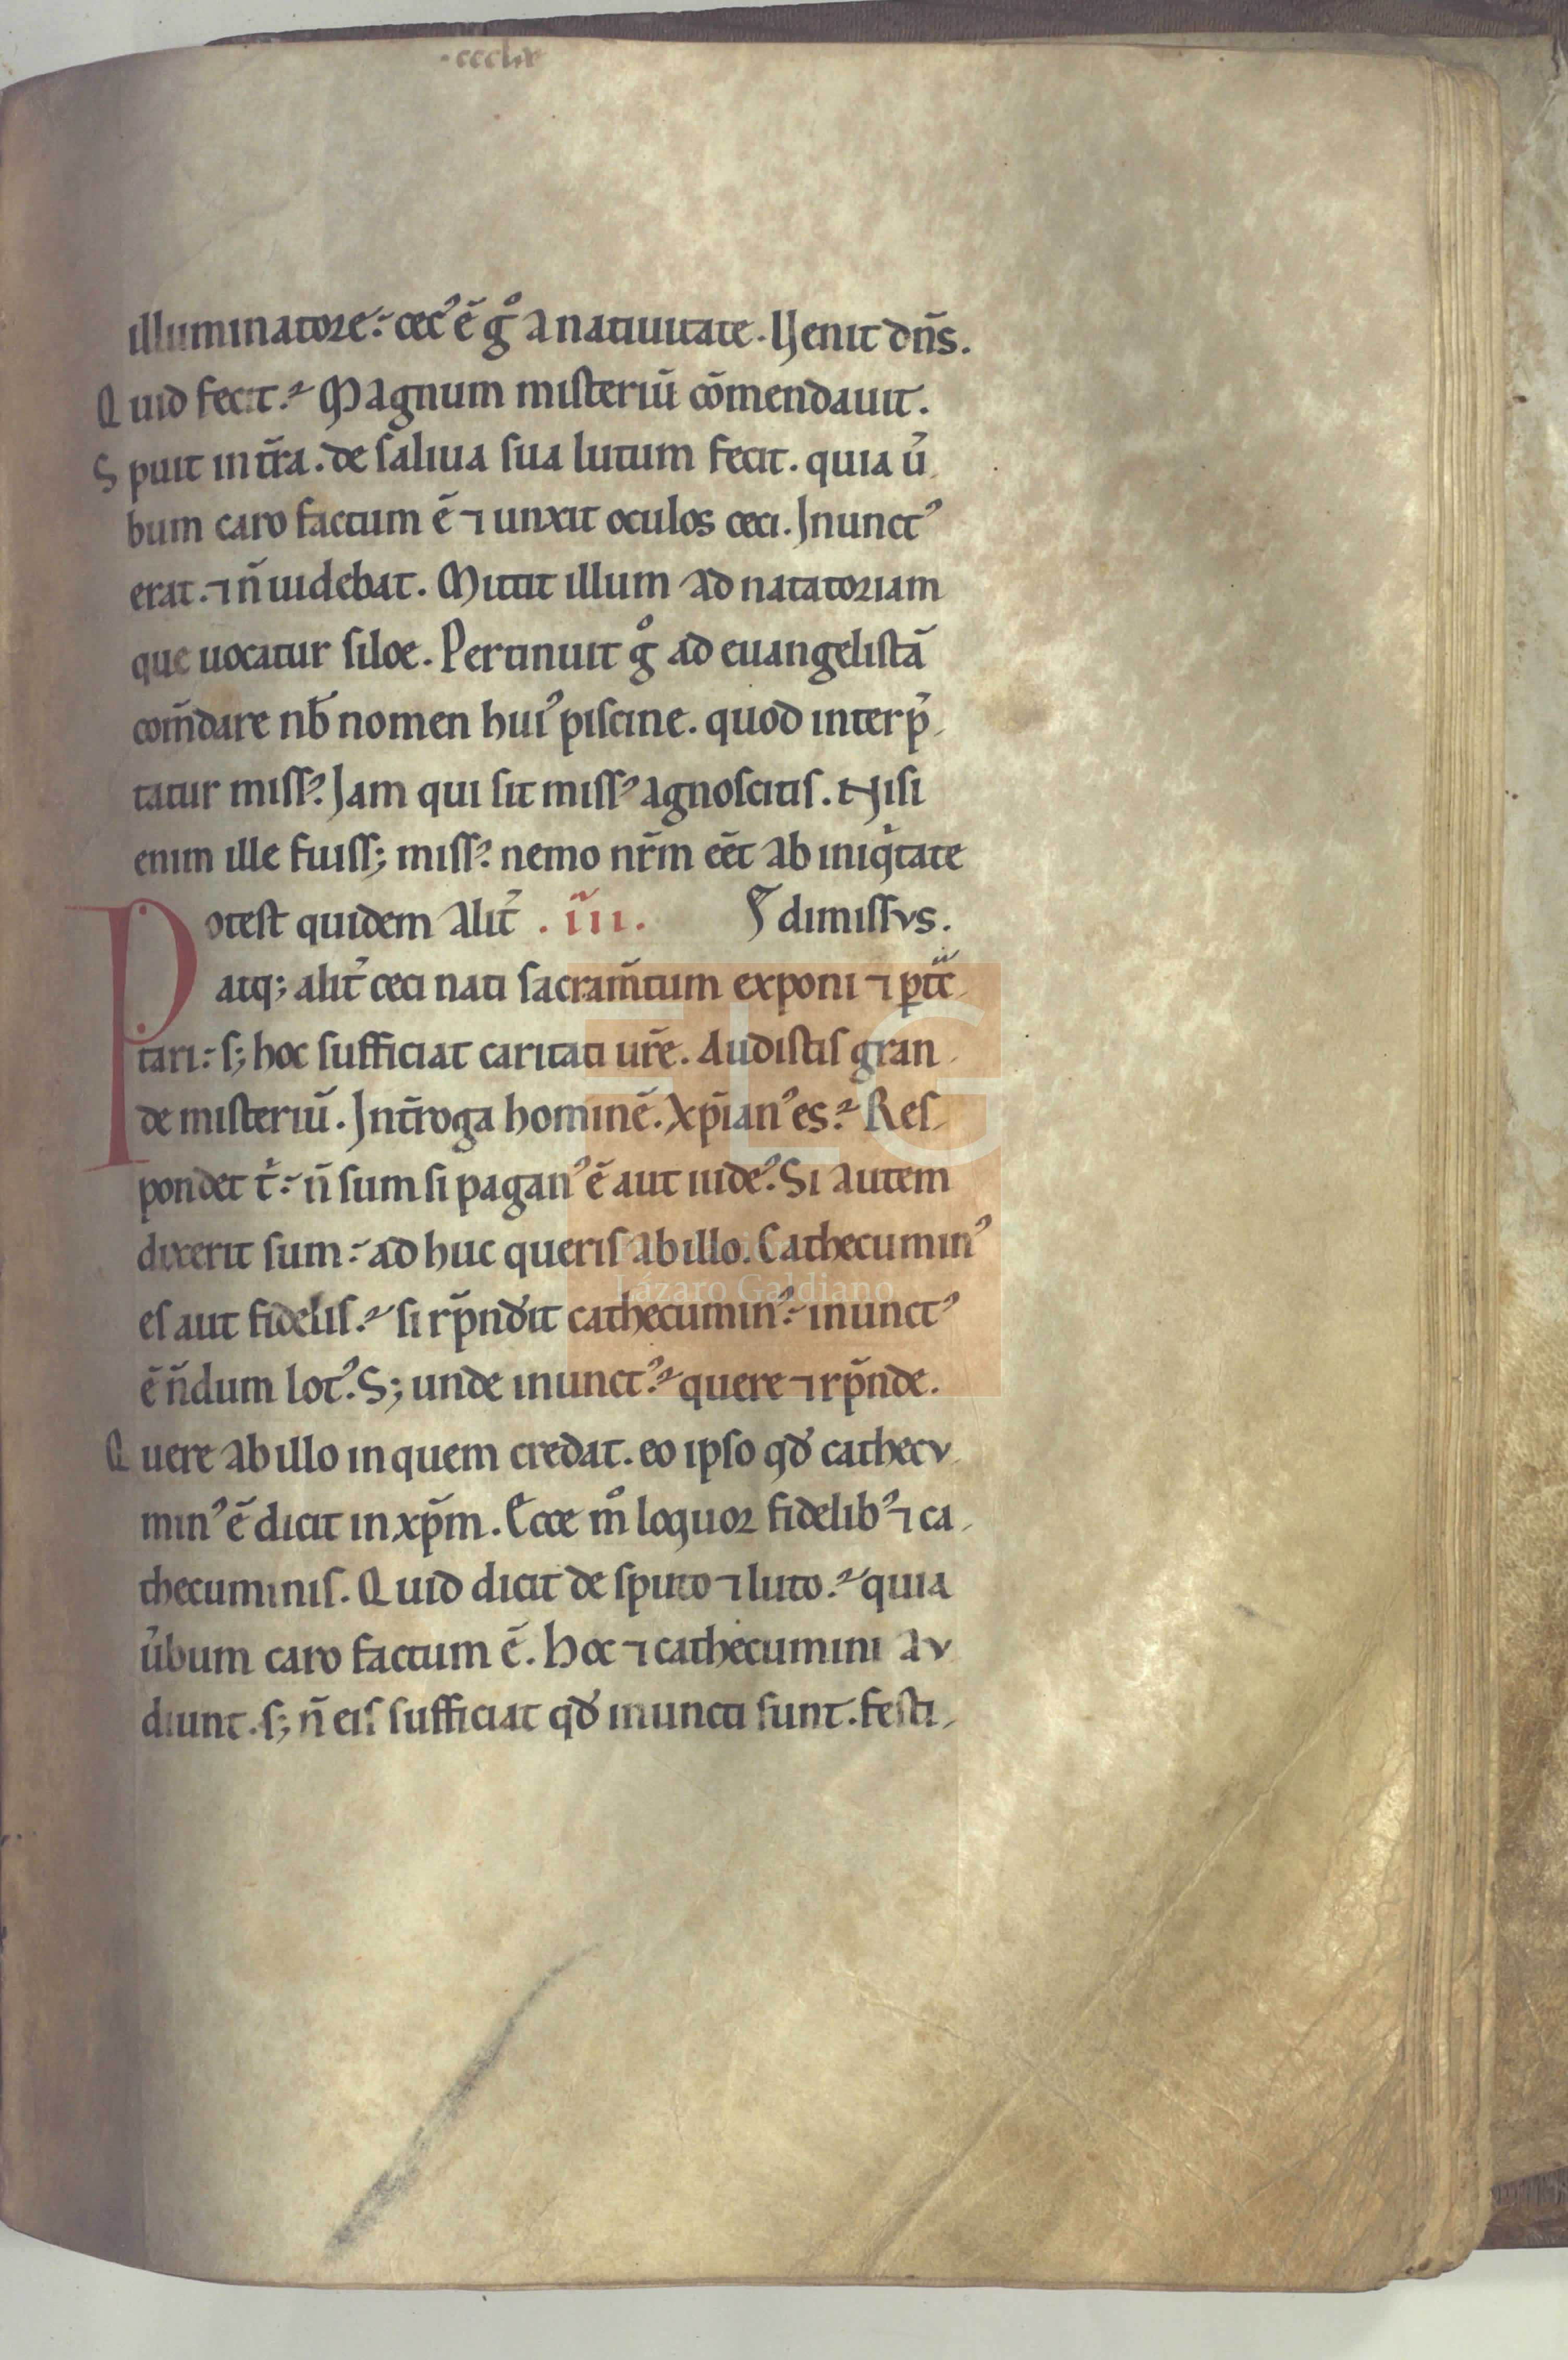 ·ccclix
illuminatore:́ cecꝰ ē g̊ a natiuitate. Uenit dn̄s.
Quid fecit? Magnum misteriū cōmendauit.
Spuit in tr̄a. de saliua sua lutum fecit. quia u̓
bum caro factum ē ⁊ unxit oculos ceci. Inunctꝰ
erat. ⁊ n̄ uidebat. Mittit illum ad natatoriam
que uocatur siloe. Pertinuit g̊ ad euangelistā
com̄dare nb̄ nomen huiꝰ piscine. quod interp̓
tatur missꝰ. Iam qui sit missꝰ agnoscitis. Nisi
enim ille fuiss; missꝰ. nemo nr̄m eēt ab iniqͥtate
dimissus.
Potest quidem alit̓ .iii.
atq; alit̓ ceci nati sacram̄tum exponi ⁊ ꝑtᷓc
tari:́ s; hoc sufficiat caritati ur̄e. Audistis gran
de misteriū. Int̄roga hominē. Xp̄ianꝰ es? Res
pondet t͛:́ n̄ sum si paganꝰ ē aut iudeꝰ. Si autem
dixerit sum:́ ad huc queris ab illo. Cathecuminꝰ
es aut fidelis? si rp̄ndꝰit cathecuminꝰ:́ inunctꝰ
ē n̄dum lotꝰ. S; unde inunctꝰ? quere ⁊ rp̄nde.
Quere ab illo in quem credat. eo ipso qđ cathecu
minꝰ ē dicit in xp̄m. Ecce m̊ loquor fidelibꝰ ⁊ ca
thecuminis. Quid dicit de sputo ⁊ luto? quia
u̓bum caro factum ē. Hoc ⁊ cathecumini au
diunt. s; n̄ eis sufficiat qđ inuncti sunt. festi
FLG
Lázaro Galdiano